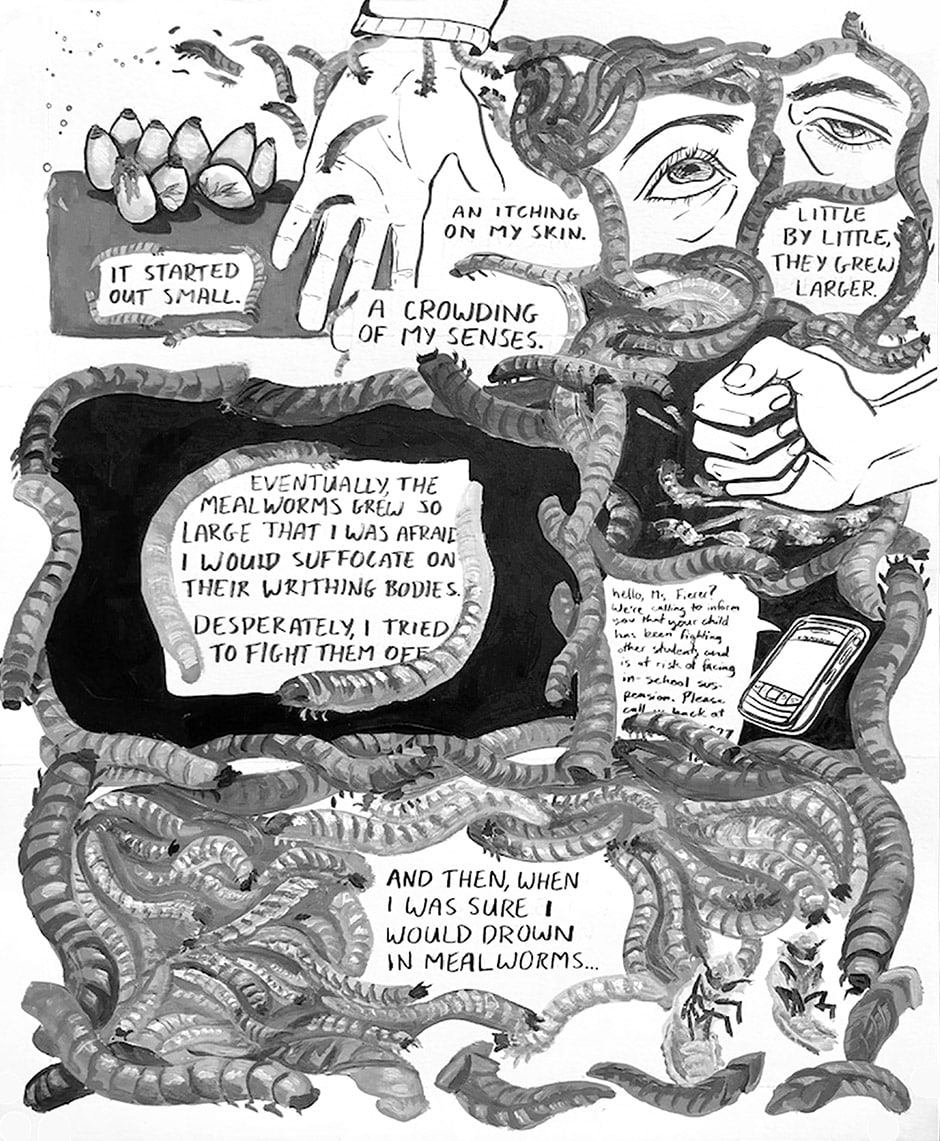 IT STARTED
OUT SMALL.
AN ITCHING
ON MY SKIN.
A CROWDING
OF MY SENSES.
LITTLE
BY LITTLE,
THEY GREW
LARGER.
EVENTUALLY, THE
MEALWORMS GREW SO
LARGE THAT I WAS AFRAID
I WOULD SUFFOCATE ON
THEIR WRITHING BODIES.
DESPERATELY, I TRIED
TO FIGHT THEM OFF
hello, Ms. Fierer?
We're calling to inform
you that your child
has been fighting
other students and
is at risk of facing
in-school sus-
pension. Please
call us back at
AND THEN, WHEN
I WAS SURE I
WOULD DROWN
IN MEALWORMS...